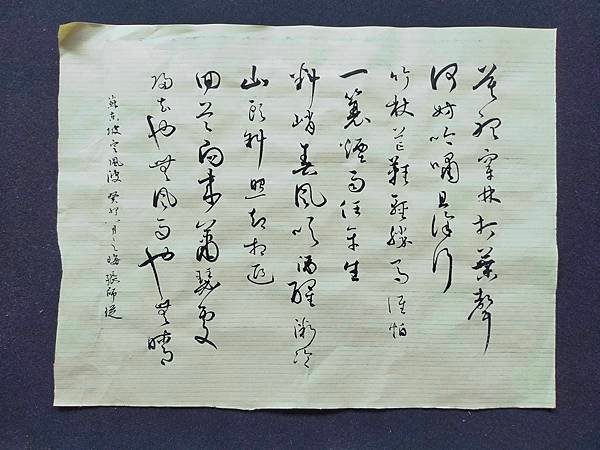 莫聽穿林打葉聲
何妨吟嘯且徐行
竹杖芒鞋輕勝馬誰怕
一蓑煙雨任平生
料峭春風吹酒醒微冷
山頭斜照却相迎
回首向來蕭瑟處
歸去也無風雨也無晴
蘇東坡定風波 癸卯八月之晦 張師